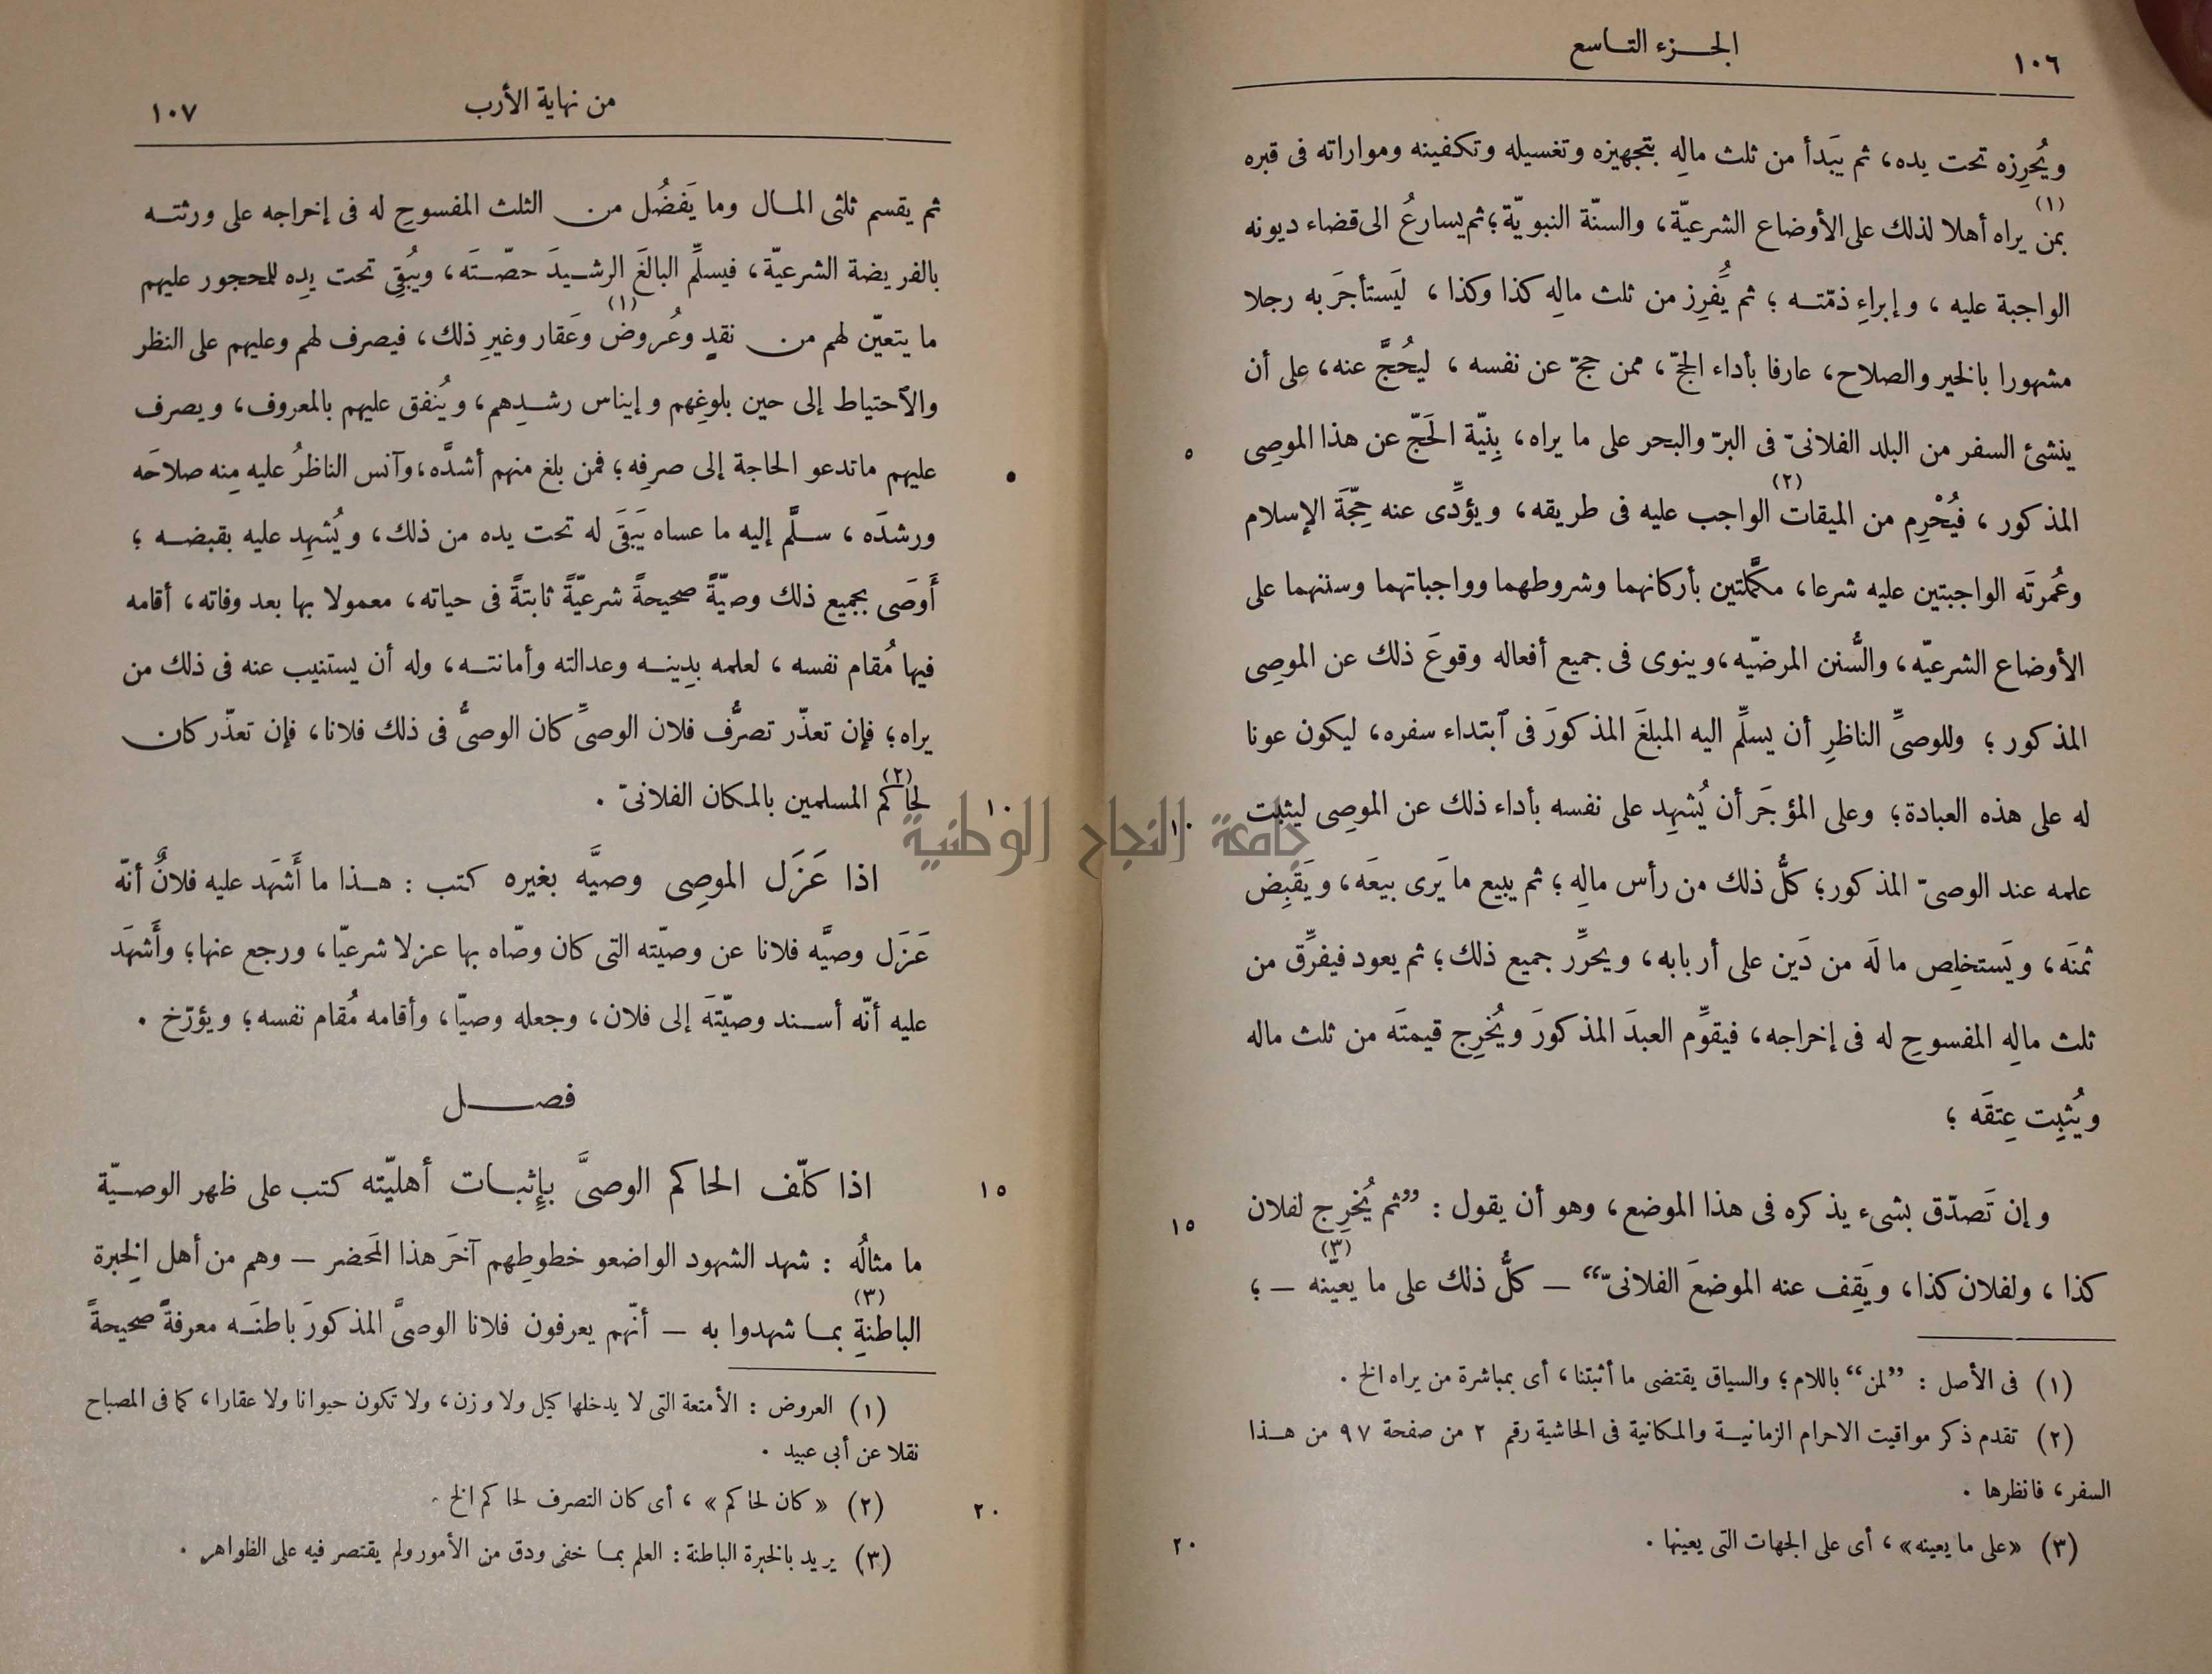 ١٠٦
الجزء التاسع
ويُحرِزه تحت يده، ثم يَبدأ من ثلث مالِه بتجهيزه وتغسيله وتكفينه ومواراته فى قبره
بمن (١) يراه أهلا لذلك على الأوضاع الشرعيّة، والسنّة النبويّة؛ ثم يسارعُ الى قضاء ديونه
الواجبة عليه، وإبراءِ ذمّته؛ ثم يُفَرِز من ثلث مالِه كذا وكذا، لَيَستأجَر به رجلا
مشهورا بالخير والصلاح، عارفا بأداء الحجّ، ممن حجّ عن نفسه، ليحُجَّ عنه، على أن
ينشئ السفر من البلد الفلانىّ فى البرّ والبحر على ما يراه، بِنيّة الَحجّ عن هذا الموصِى
٥
المذكور، فيُحْرِم من الميقات (٢) الواجب عليه فى طريقه، ويؤدِّى عنه حِجّةَ الإسلام
وعُمرتَه الواجبتين عليه شرعا، مكمَّلتين بأركانهما وشروطهما وواجباتهما وسننهما على
الأوضاع الشرعيّه، والسُّنن المرضيّه، وينوى فى جميع أفعاله وقوعَ ذلك عن الموصِى
المذكور؛ وللوصىِّ الناظرِ أن يسلِّم اليه المبلغَ المذكورَ فى ٱبتداء سفره، ليكون عونا
له على هذه العبادة؛ وعلى المؤجَر أن يُشهِد على نفسه بأداء ذلك عن الموصِى ليثبت
١٠
علمه عند الوصىّ المذكور؛ كلُّ ذلك من رأس مالِه؛ ثم يبيع ما يَرى بيعَه، ويَقبِض
ثمنَه، ويَستخلِص ما لَه من دَين على أربابه، ويحرِّر جميع ذلك؛ ثم يعود فيفرِّق من
ثلث مالِه المفسوحِ له فى إخراجه، فيقوِّم العبدَ المذكورَ ويُخرِج قيمتَه من ثلث ماله
ويُثبِت عِتقَه؛
وإن تَصدّق بشىء يذكره فى هذا الموضع، وهو أن يقول: ”ثم يُخرِج لفلان
١٥
كذا، ولفلان كذا، ويَقِف عنه الموضعَ الفلانىّ“ — كلُّ ذلك على ما يعيّنه (٣) —؛
(١) فى الأصل: ”لمن“ باللام؛ والسياق يقتضى ما أثبتنا، أى بمباشرة من يراه الخ.
(٢) تقدم ذكر مواقيت الاحرام الزمانية والمكانية فى الحاشية رقم ٢ من صفحة ٩٧ من هذا
السفر، فانظرها.
(٣) «على ما يعينه»، أى على الجهات التى يعينها.
٢٠
من نهاية الأرب
١٠٧
ثم يقسم ثلثى المال وما يَفضُل من الثلث المفسوحِ له فى إخراجه على ورثته
بالفريضة الشرعيّة، فيسلِّم البالغَ الرشيدَ حصّتَه، ويبُقِى تحت يدِه للمحجور عليهم
ما يتعيّن لهم من نقدٍ وعُروض (١) وعَقار وغيرِ ذلك، فيصرف لهم وعليهم على النظر
والاحتياط إلى حين بلوغِهم وإيناس رشدِهم، ويُنفق عليهم بالمعروف، ويصرف
عليهم ما تدعو الحاجة إلى صرفِه؛ فمن بلغ منهم أشدَّه، وآنس الناظرُ عليه مِنه صلاحَه
٥
ورشدَه، سلَّم إليه ما عساه يَبقَى له تحت يده من ذلك، ويُشهِد عليه بقبضه؛
أَوصَى بجميع ذلك وصيّةً صحيحةً شرعيّةً ثابتةً فى حياته، معمولا بها بعد وفاته، أقامه
فيها مُقام نفسه، لعلمه بدِينه وعدالته وأمانته، وله أن يستنيب عنه فى ذلك من
يراه؛ فإن تعذّر تصرُّف فلان الوصىِّ كان الوصىُّ فى ذلك فلانا، فإن تعذّر كان
لحاكم (٢) المسلمين بالمكان الفلانىّ.
١٠
جامعة النجاح الوطنية
اذا عَزَل الموصِى وصيَّه بغيره كتب: هذا ما أَشهَد عليه فلانٌ أنّه
عَزَل وصيَّه فلانا عن وصيّته التى كان وصّاه بها عزلا شرعيّا، ورجع عنها؛ وأَشهَد
عليه أنّه أسند وصيّتَه إلى فلان، وجعله وصيّا، وأقامه مُقام نفسه؛ ويؤرّخ.
فصل
اذا كلّف الحاكم الوصىَّ بإثبات أهليّته كتب على ظهر الوصيّة
١٥
ما مثالُه: شهد الشهود الواضعو خطوطِهم آخرَ هذا المَحضر — وهم من أهل الخِبرة
الباطنةِ (٣) بما شهدوا به — أنّهم يعرفون فلانا الوصىَّ المذكورَ باطنَه معرفةً صحيحةً
(١) العروض: الأمتعة التى لا يدخلها كيل ولا وزن، ولا تكون حيوانا ولا عقارا، كما فى المصباح
نقلا عن أبى عبيد.
(٢) «كان لحاكم»، أى كان التصرف لحاكم الخ.
٢٠
(٣) يريد بالخبرة الباطنة: العلم بما خفى ودق من الأمور ولم يقتصر فيه على الظواهر.